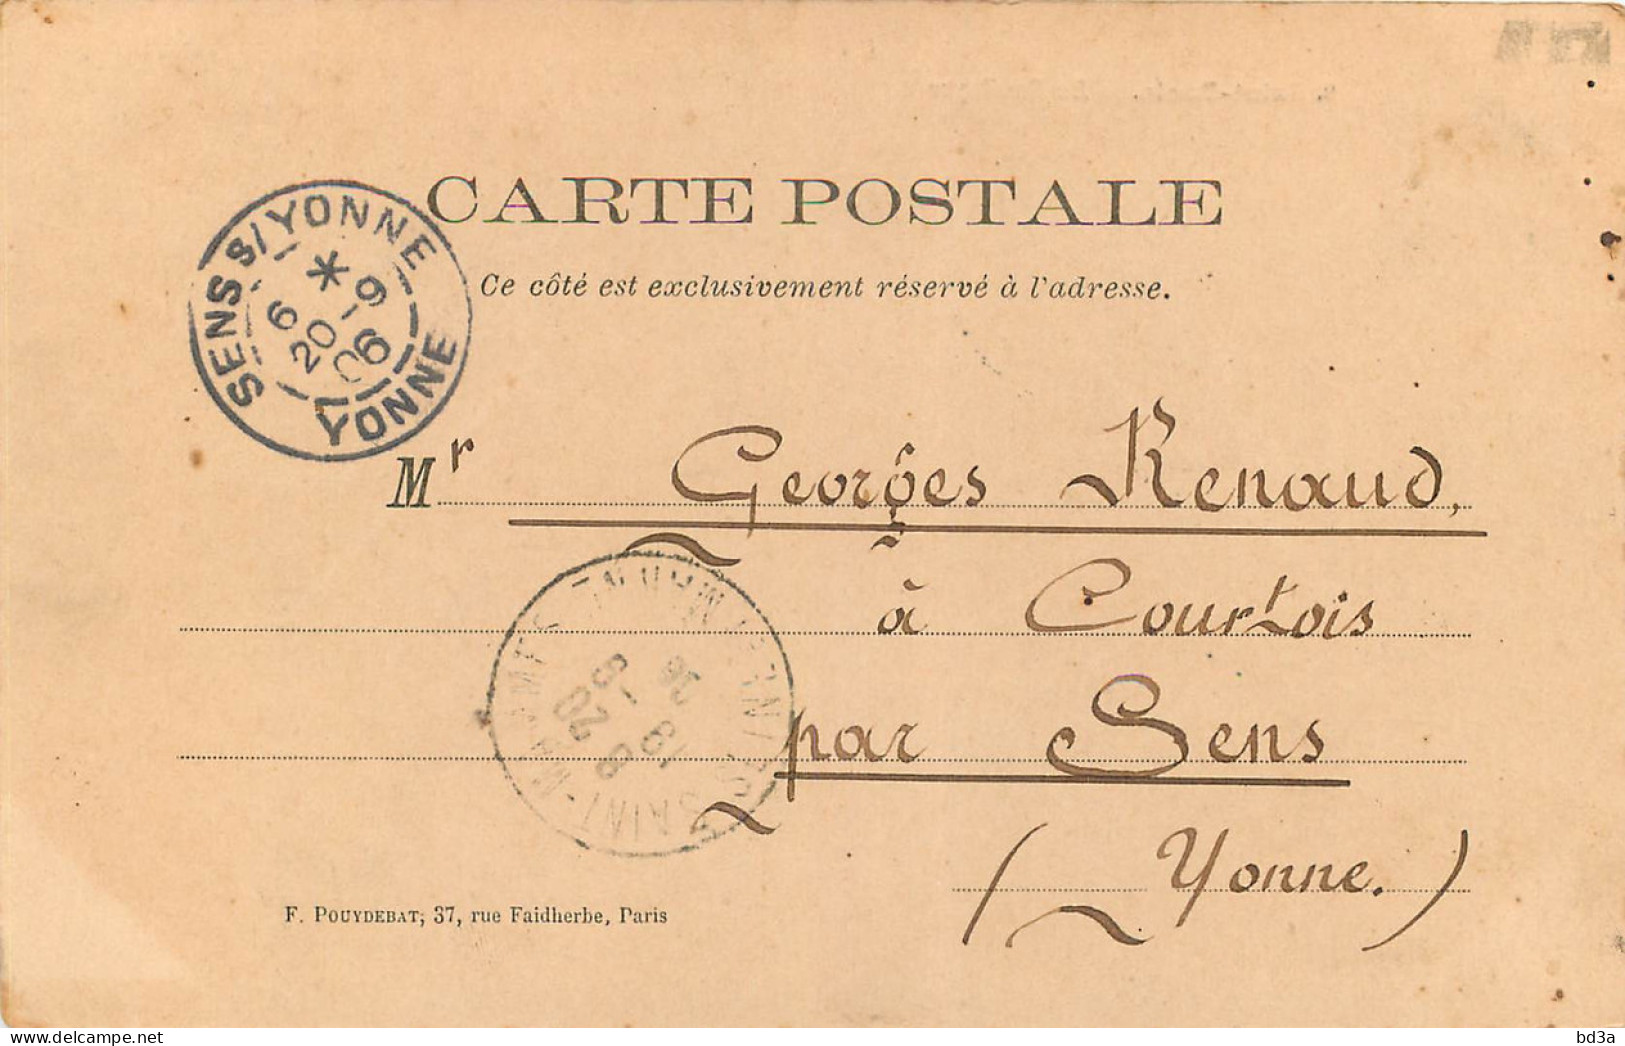 CARTE POSTALE
Ce côté est exclusivement réservé à l'adresse.
SENS S/YONNE
*
6
20-9
06
YONNE
Mr Georges Renaud,
à Courtois
par Sens
(Yonne.)
SAINT-
F. POUYDEBAT, 37, rue Faidherbe, Paris
www.delcampe.net
bd3a